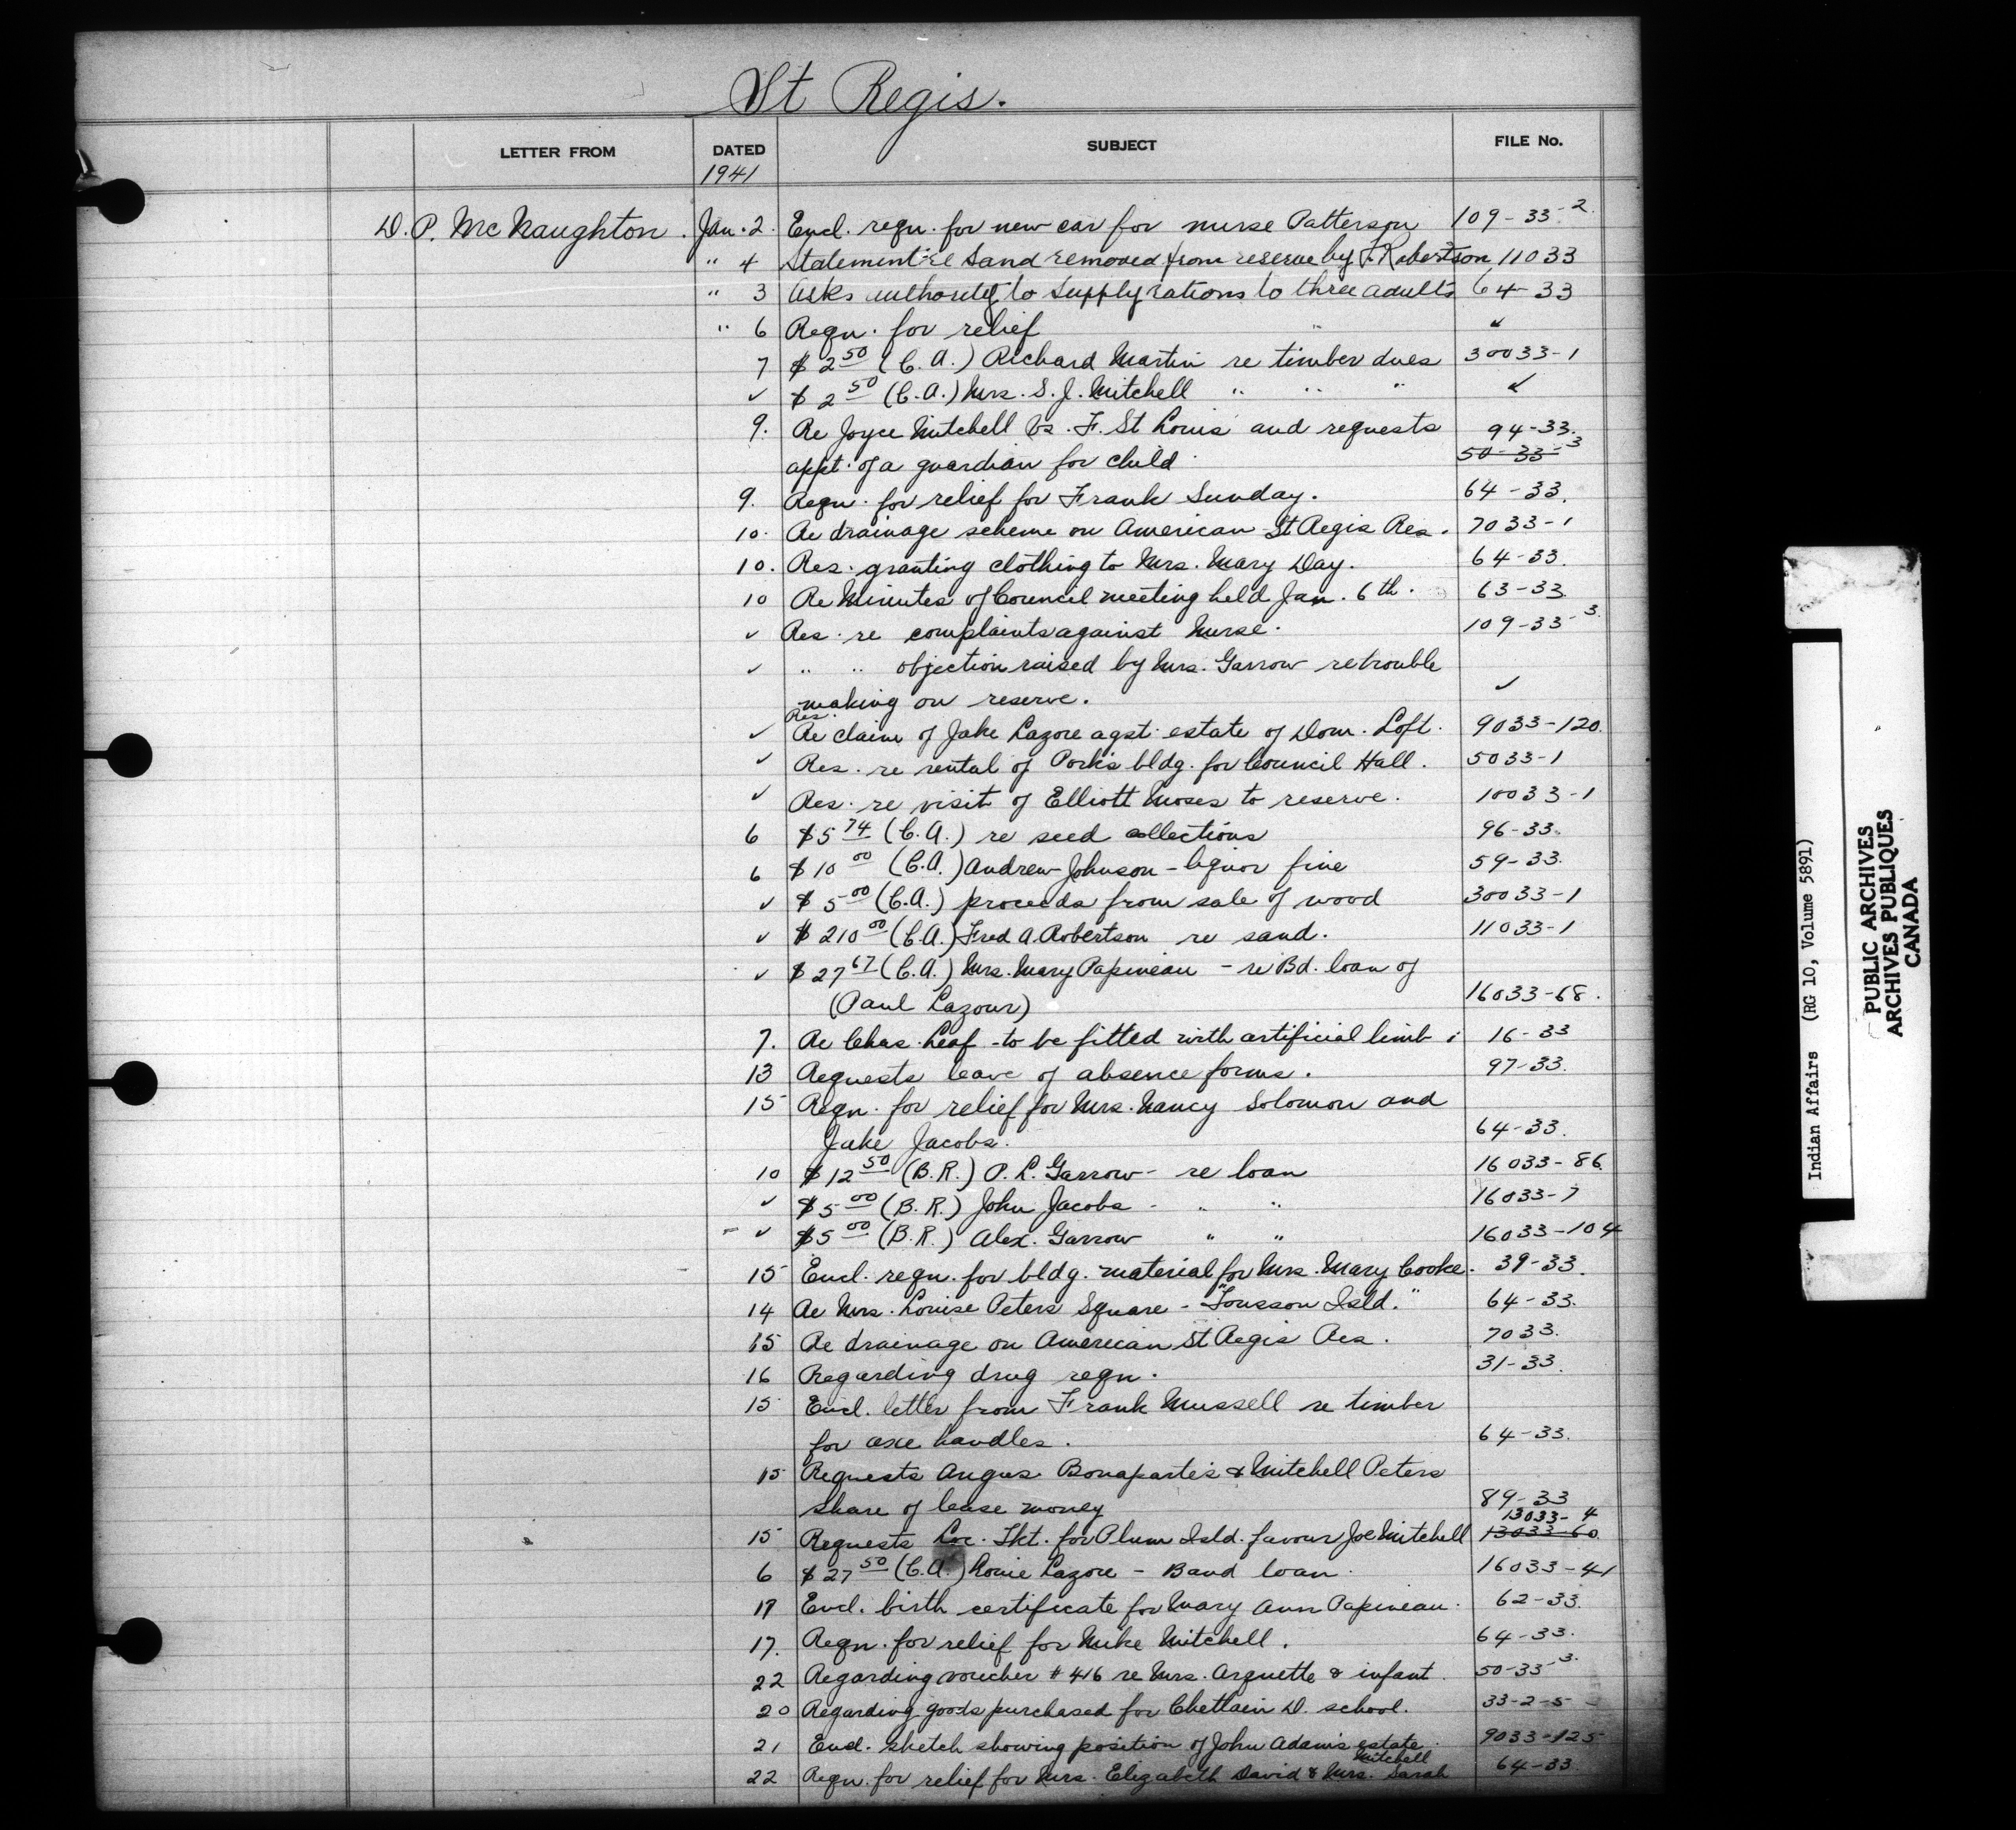 St Regis.
LETTER FROM DATED SUBJECT FILE No.
1941
D. P. McNaughton. Jan. 2. Encl. reqn. for new car for nurse Patterson 109-33-2.
" 4 Statement re sand removed from reserve by F. Robertson 11033
" 3 Asks authority to supply rations to three adults 64-33
" 6 Reqn. for relief " ✓
7 $2 50 (C.A.) Richard Martin re timber dues 30033-1
✓ $2 50 (C.A.) Mrs. S. J. Mitchell " " " ✓
9. Re Joyce Mitchell vs. F. St Louis and requests 94-33.
appt. of a guardian for child. 50-33-3
9. Reqn. for relief for Frank Sunday. 64-33.
10. Re drainage scheme on American St Regis Res. 7033-1
10. Res. granting clothing to Mrs. Mary Day. 64-33.
10 Re Minutes of Council meeting held Jan. 6th. 63-33
✓ Res. re complaints against Nurse. 109-33-3.
✓ " " objection raised by Mrs. Garrow re trouble
making on reserve. ✓
Res.
✓ Re claim of Jake Lazore agst. estate of Dom. Loft. 9033-120.
✓ Res. re rental of Pork's bldg. for Council Hall. 5033-1
✓ Res. re visit of Elliott Moses to reserve. 10033-1
6 $5 74 (C.A.) re seed collections 96-33.
6 $10 00 (C.A.) Andrew Johnson - liquor fine 59-33.
✓ $5 00 (C.A.) proceeds from sale of wood 30033-1
✓ $210 00 (C.A.) Fred A. Robertson re sand. 11033-1
✓ $27 67 (C.A.) Mrs. Mary Papineau - re Bd. loan of
(Paul Lazour) 16033-68.
7. Re Chas. Leaf - to be fitted with artificial limb. 16-33
13 Requests leave of absence forms. 97-33.
15 Reqn. for relief for Mrs. Nancy Solomon and
Jake Jacobs. 64-33.
10 $12 50 (B.R.) P. L. Garrow - re loan 16033-86.
✓ $5 00 (B.R.) John Jacobs - " " 16033-7
- ✓ $5 00 (B.R.) Alex. Garrow " " 16033-104
15 Encl. reqn. for bldg. material for Mrs. Mary Cooke. 39-33.
14 Re Mrs. Louise Peters Square - "Tousson Isld." 64-33.
15 Re drainage on American St Regis Res. 7033.
16 Regarding drug reqn. 31-33.
15 Encl. letter from Frank Mussell re timber
for axe handles. 64-33.
15 Requests Angus Bonaparte's & Mitchell Peters
share of lease money 89-33
13033-4
15 Requests Loc. Tkt. for Plum Isld. favour Joe Mitchell 13033-60
6 $27 50 (C.A.) Louie Lazore - Band loan. 16033-41
17 Encl. birth certificate for Mary Ann Papineau. 62-33.
17. Reqn. for relief for Mike Mitchell. 64-33.
22 Regarding voucher #416 re Mrs. Arquette & infant. 50-33-3.
20 Regarding goods purchased for Chettain D. school. 33-2-5
21 Encl. sketch showing position of John Adams estate. 9033-125
Mitchell
22 Reqn. for relief for Mrs. Elizabeth David & Mrs. Sarah 64-33
Indian Affairs (RG 10, Volume 5891)
PUBLIC ARCHIVES
ARCHIVES PUBLIQUES
CANADA